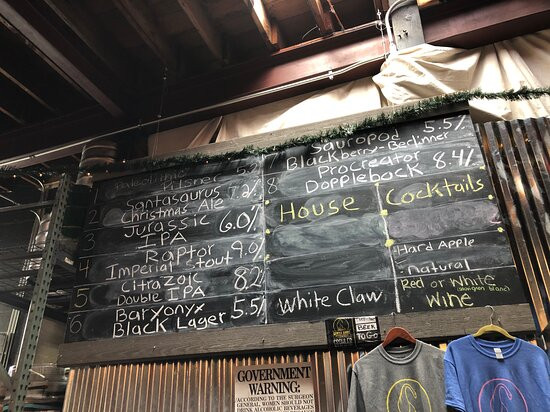 1 Paleolithic
Pilsner 5.2%
2 Santasaurus
Christmas Ale 7.2%
3 Jurassic
IPA 6.0%
4 Raptor
Imperial Stout 9.0%
5 Citrazoic
Double IPA 8.2
6 Baryonyx
Black Lager 5.5%
7 Sauropod 5.5%
Blackberry-Berliner
8 Procreator
Dopplebock 8.4%
House Cocktails
Hard Apple
natural
White Claw
Red or White
(sauvignon blanc)
Wine
BEER
TO GO
GOVERNMENT
WARNING:
ACCORDING TO THE SURGEON
GENERAL, WOMEN SHOULD NOT
DRINK ALCOHOLIC BEVERAGES